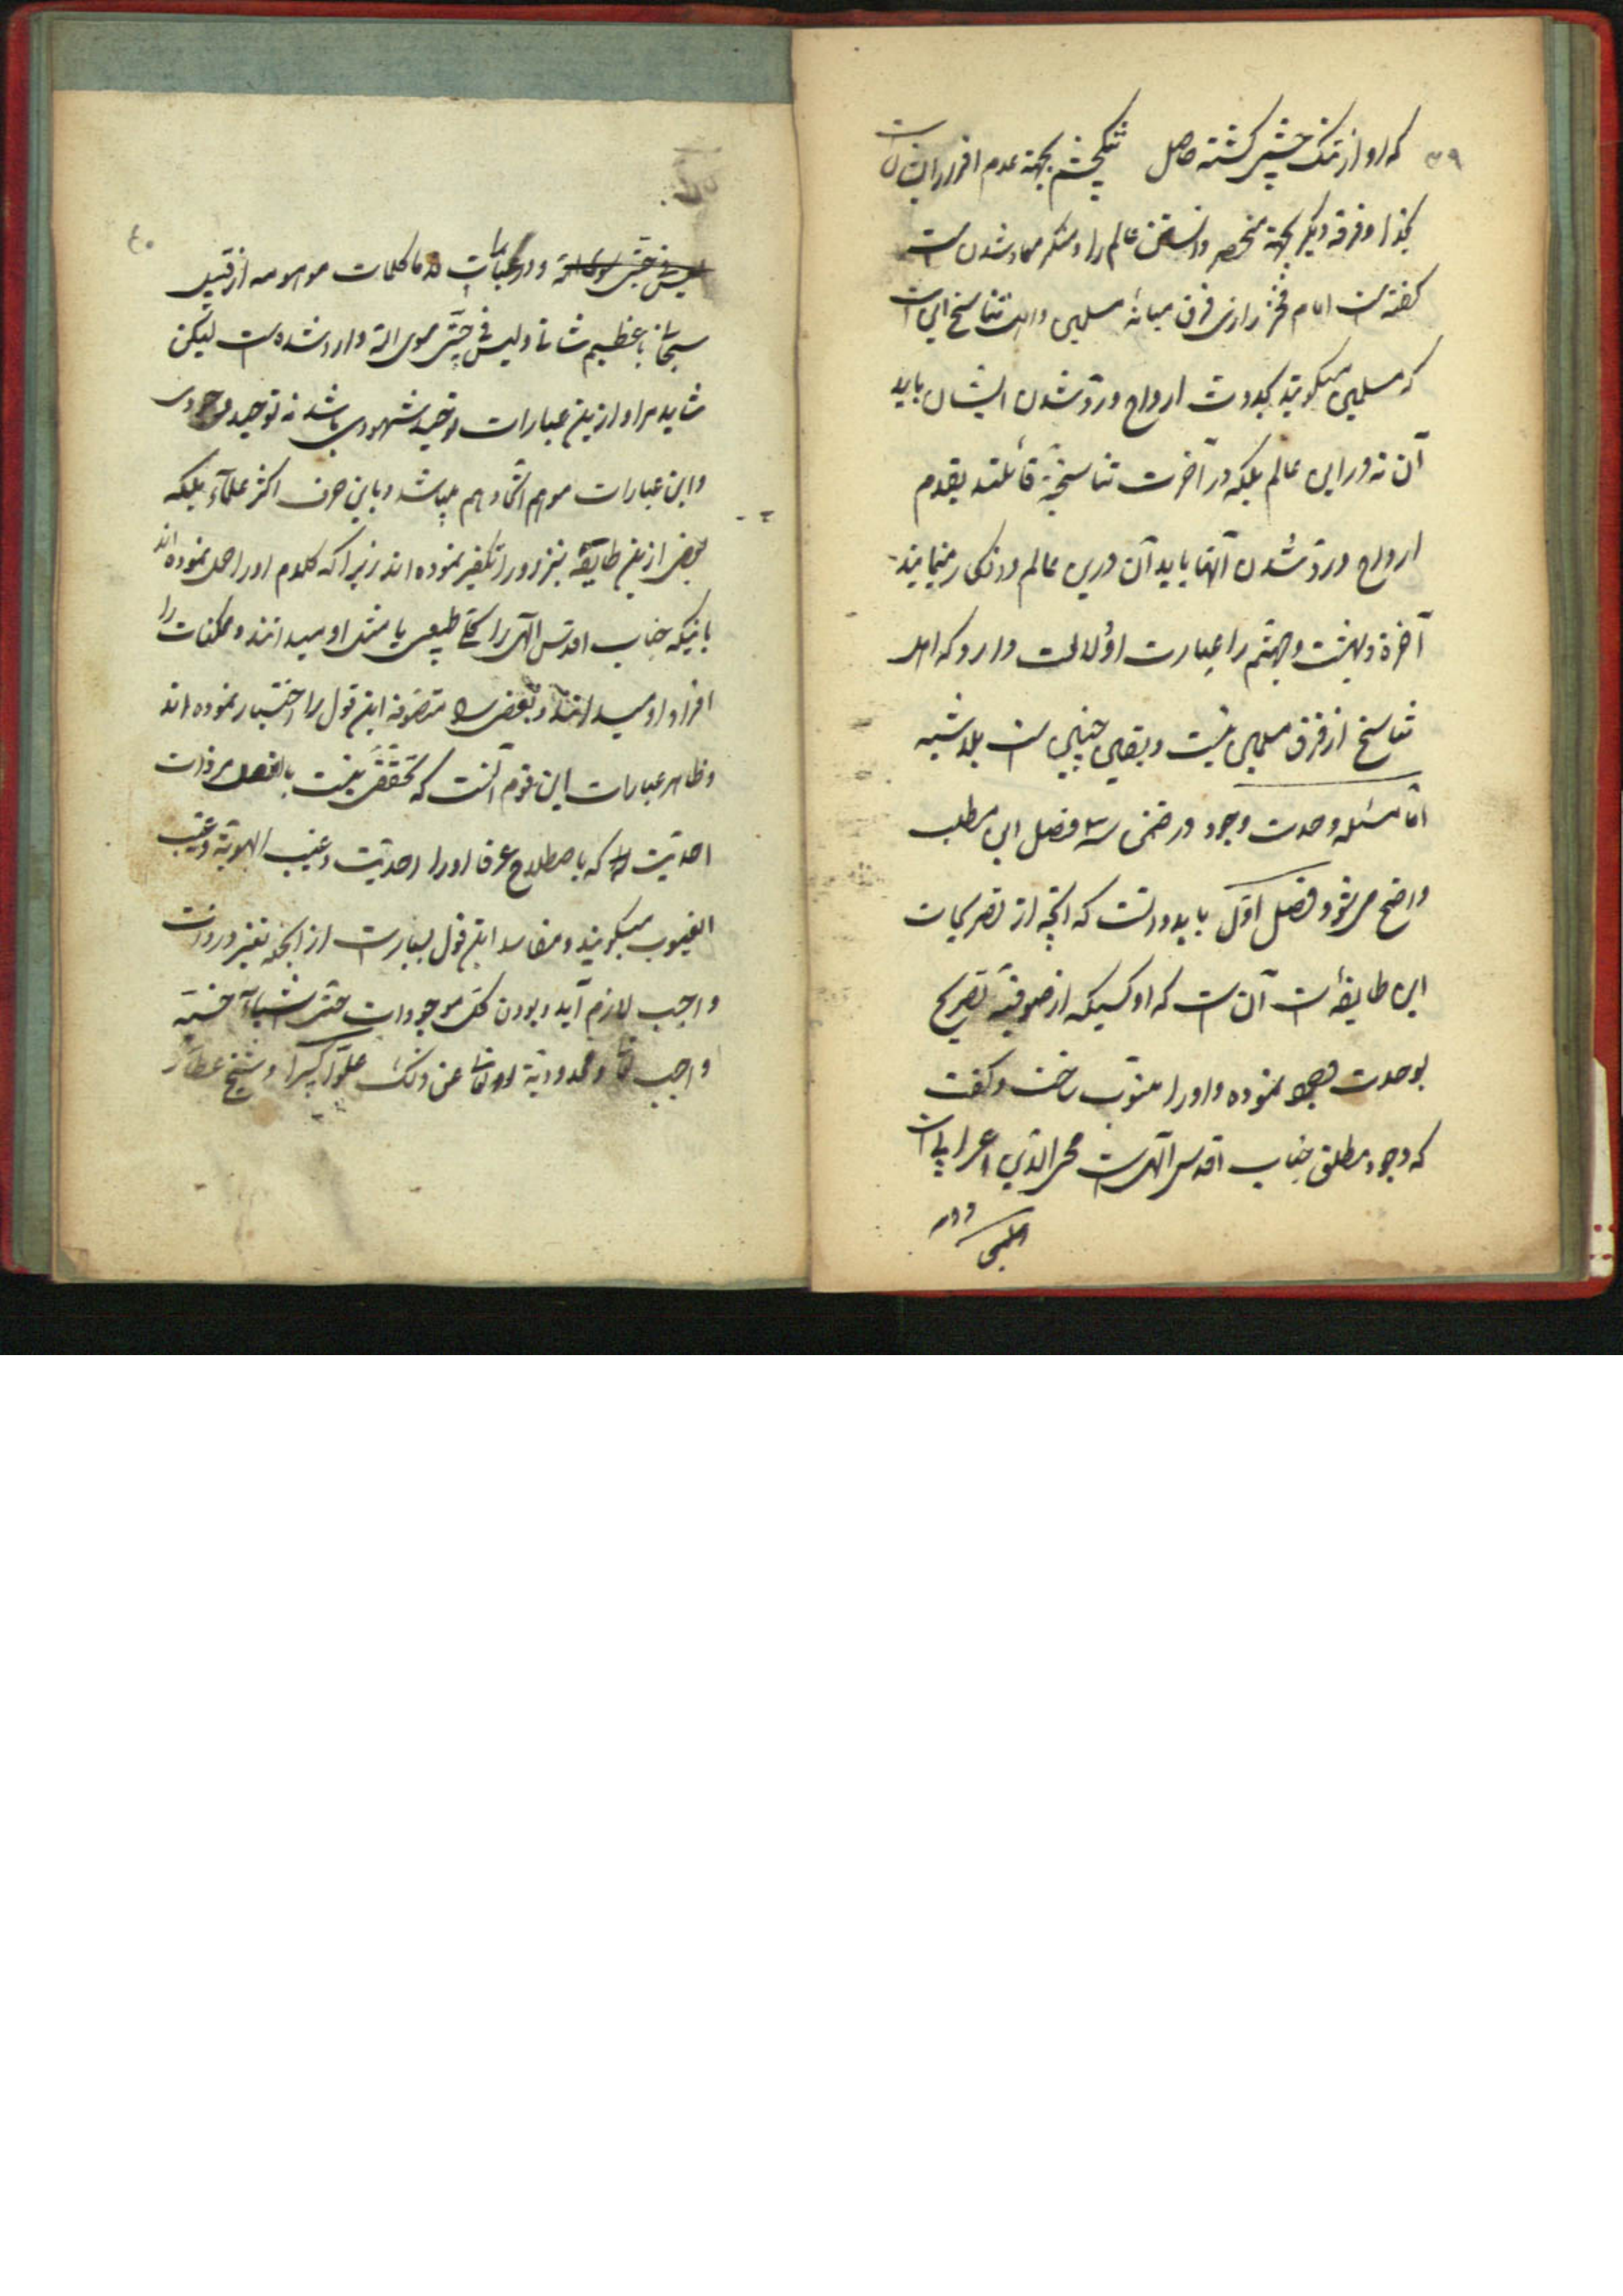 ۳۹
که او از نمک چشی گشته حاصل نمیچشم بجهة عدم اقرار ایشان است
بخدا و فرقه دیگر بجهة منحصر دانستن عالم را و منکر معاد شدن است
گفته است امام فخر رازی فرق میانهٔ مسلمین و اهل تناسخ این است
که مسلمین میگویند بحدوث ارواح و ردّ شدن ایشان بابدان
آن نه در این عالم بلکه در آخرت تناسخیّه قائلند بقدم
ارواح و ردّ شدن آنها بابدان در این عالم و انکار مینمایند
آخرة و بهشت و جهنّم را عبارت او دلالت دارد که اهل
تناسخ از فرق مسلمین نیست و بیقین چنین است بلا شبه
امّا مسئله وحدت وجود در ضمن سه فصل این مطلب
واضح می شود فصل اوّل باید دانست که آنچه از تصریحات
این طایفه است آن است که اوّل کسیکه از صوفیّه تصریح
بوحدت وجود نموده و او را مبوّب ساخت و گفت
که وجود مطلق جناب اقدس آلهی است محی الدّین اعرابی است
۴۰
لیس فی جبّتی سوی اللّه و در عبارات قدما کلمات موهومه از قبیل
سبحانی ما اعظم شانی و لیس فی جبّتی سوی اللّه وارد شده است لیکن
شاید مراد ازین عبارات توحید شهودی باشد نه توحید وجودی
و این عبارات موهم اتّحاد هم میباشد و باین حرف اکثر علمآء بلکه
بعضی ازین طایفه نیز او را تکفیر نموده اند زیرا که کلام او را حمل نموده اند
باینکه جناب اقدس آلهی را کلّی طبیعی یا مثل او میدانند و ممکنات را
افراد او میدانند و بعضی متصوّفه این قول را اختیار نموده اند
و ظاهر عبارات این قوم آنست که تحقّقی نیست بالفعل مر ذات
احدیّت را که باصطلاح عرفا او را احدیّت و غیب الهویّة و غیب
الغیوب میگویند و مفاسد این قول بسیار است از آنجمله تغیّر در ذات
واجب لازم آید و بودن کلّ موجودات حتّی اشیاء خسیسه
واجب و محدودیّة او تعالی عن ذلک علوّاً کبیرا و شیخ عطّار